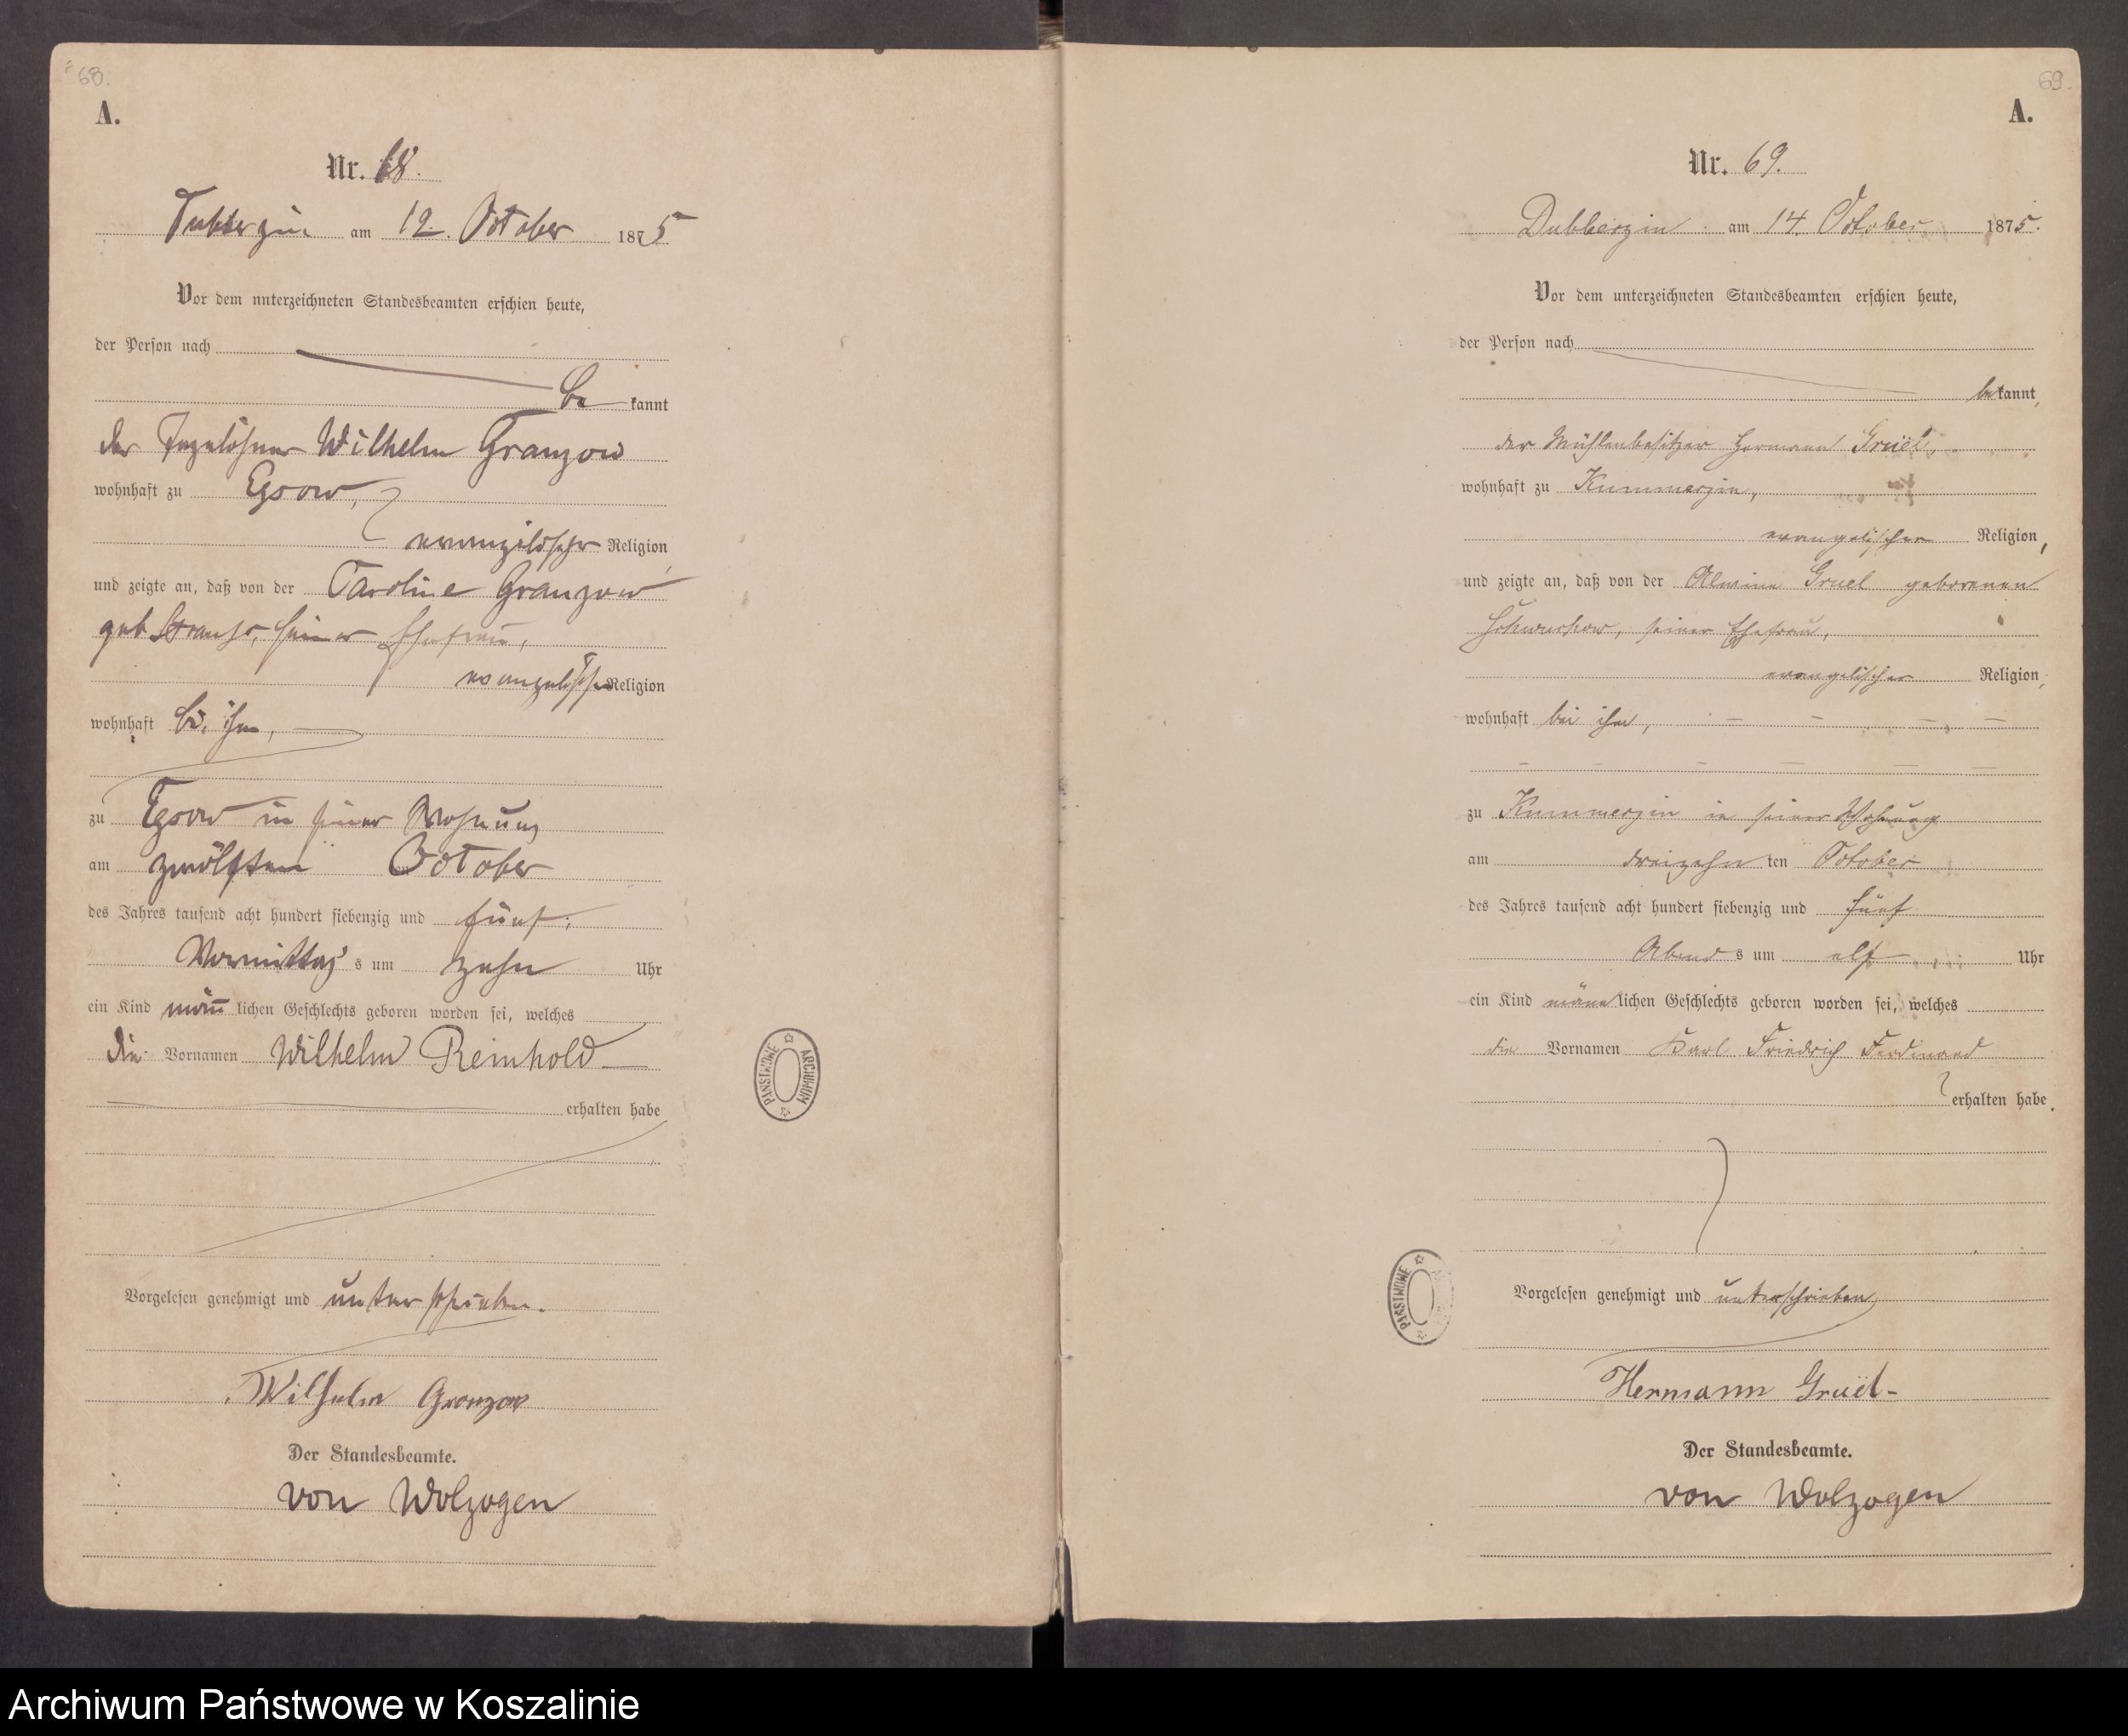 68.
A.
Nr. 68.
Dubberzin am 12. October 1875
Vor dem unterzeichneten Standesbeamten erschien heute,
der Person nach
be kannt
der Tagelöhner Wilhelm Granzow
wohnhaft zu Egsow,
evangelischer Religion
und zeigte an, daß von der Caroline Granzow
geb. seiner Ehefrau,
evangelischer Religion
wohnhaft bei ihm,
zu Egsow in seiner Wohnung
am zwölften October
des Jahres tausend acht hundert siebenzig und fünf,
Vormittag s um zehn Uhr
ein Kind männ lichen Geschlechts geboren worden sei, welches
die Vornamen Wilhelm Reinhold
erhalten habe
Vorgelesen genehmigt und unterschrieben.
Wilhelm Granzow
Der Standesbeamte.
von Wolzogen
PAŃSTWOWE ARCHIWUM
69.
A.
Nr. 69.
Dubberzin am 14. October 1875.
Vor dem unterzeichneten Standesbeamten erschien heute,
der Person nach
bekannt,
der Mühlenbesitzer Hermann Gruël,
wohnhaft zu Kummerzin,
evangelischer Religion,
und zeigte an, daß von der Alwine Gruel geborenen
seiner Ehefrau,
evangelischer Religion,
wohnhaft bei ihm,
zu Kummerzin in seiner Wohnung
am dreizehn ten October
des Jahres tausend acht hundert siebenzig und fünf
Abend s um elf Uhr
ein Kind männ lichen Geschlechts geboren worden sei, welches
die Vornamen Karl Friedrich Ferdinand
erhalten habe.
PAŃSTWOWE
Vorgelesen genehmigt und unterschrieben
Hermann Gruël
Der Standesbeamte.
von Wolzogen
Archiwum Państwowe w Koszalinie